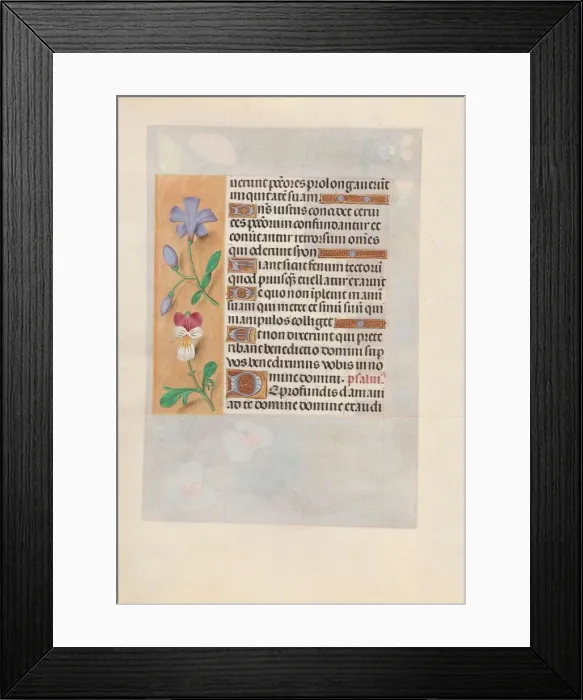 uerunt pctores prolongauerūt
iniquitatē suam.
Dn̄s iustus concidet ceruı
ces pctorum confundantur et
conuertantur retrorsum om̄es
qui oderunt syon.
Fiant sicut fenum tectorū
quod priusq̄ euellatur exaruit
De quo non īpleuit manū
suam qui metet et sinū suū qui
manipulos colliget
Et non dixerunt qui prete
ribāt benedictio domini sup
vos benediximus vobis in no
mine domini. psalm9
De profundis clamaui
ad te domine domine exaudi